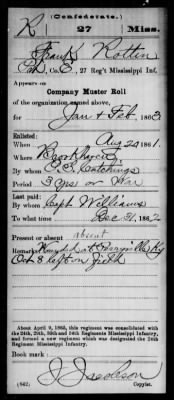 (Confederate.)
R 27 Miss.
Frank Rotten
Pvt., Co. E, 27 Reg't Mississippi Inf.
Appears on
Company Muster Roll
of the organization named above,
for Jan & Feb, 1863.
Enlisted:
When Aug 24, 1861.
Where Brookhaven
By whom C. Catchings
Period 3 yrs or War
Last paid:
By whom Capt Williams
To what time Dec 31, 1862
Present or absent absent
Remarks: at Perryville Ky
Oct 8 left on field
About April 9, 1865, this regiment was consolidated with
the 24th, 29th, 30th and 34th Regiments Mississippi Infantry,
and formed a new regiment which was designated the 24th
Regiment Mississippi Infantry.
Book mark:
(642) J Jacobson
Copyist.